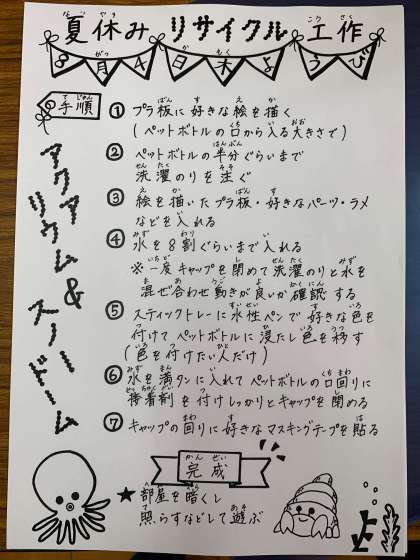 夏休み リサイクル 工作
8月4日木ようび
手順
アクアリウム&スノードーム
① プラ板に好きな絵を描く
(ペットボトルの口から入る大きさで)
② ペットボトルの半分ぐらいまで
洗濯のりを注ぐ
③ 絵を描いたプラ板・好きなパーツ・ラメ
などを入れる
④ 水を8割ぐらいまで入れる
※一度キャップを閉めて洗濯のりと水を
混ぜ合わせ動きが良いか確認する
⑤ スティックトレーに水性ペンで好きな色を
付けてペットボトルに浸たし色を移す
(色を付けたい人だけ)
⑥ 水を満タンに入れてペットボトルの口回りに
接着剤を付けしっかりとキャップを閉める
⑦ キャップの回りに好きなマスキングテープを貼る
完成
★部屋を暗くし
照らすなどして遊ぶ